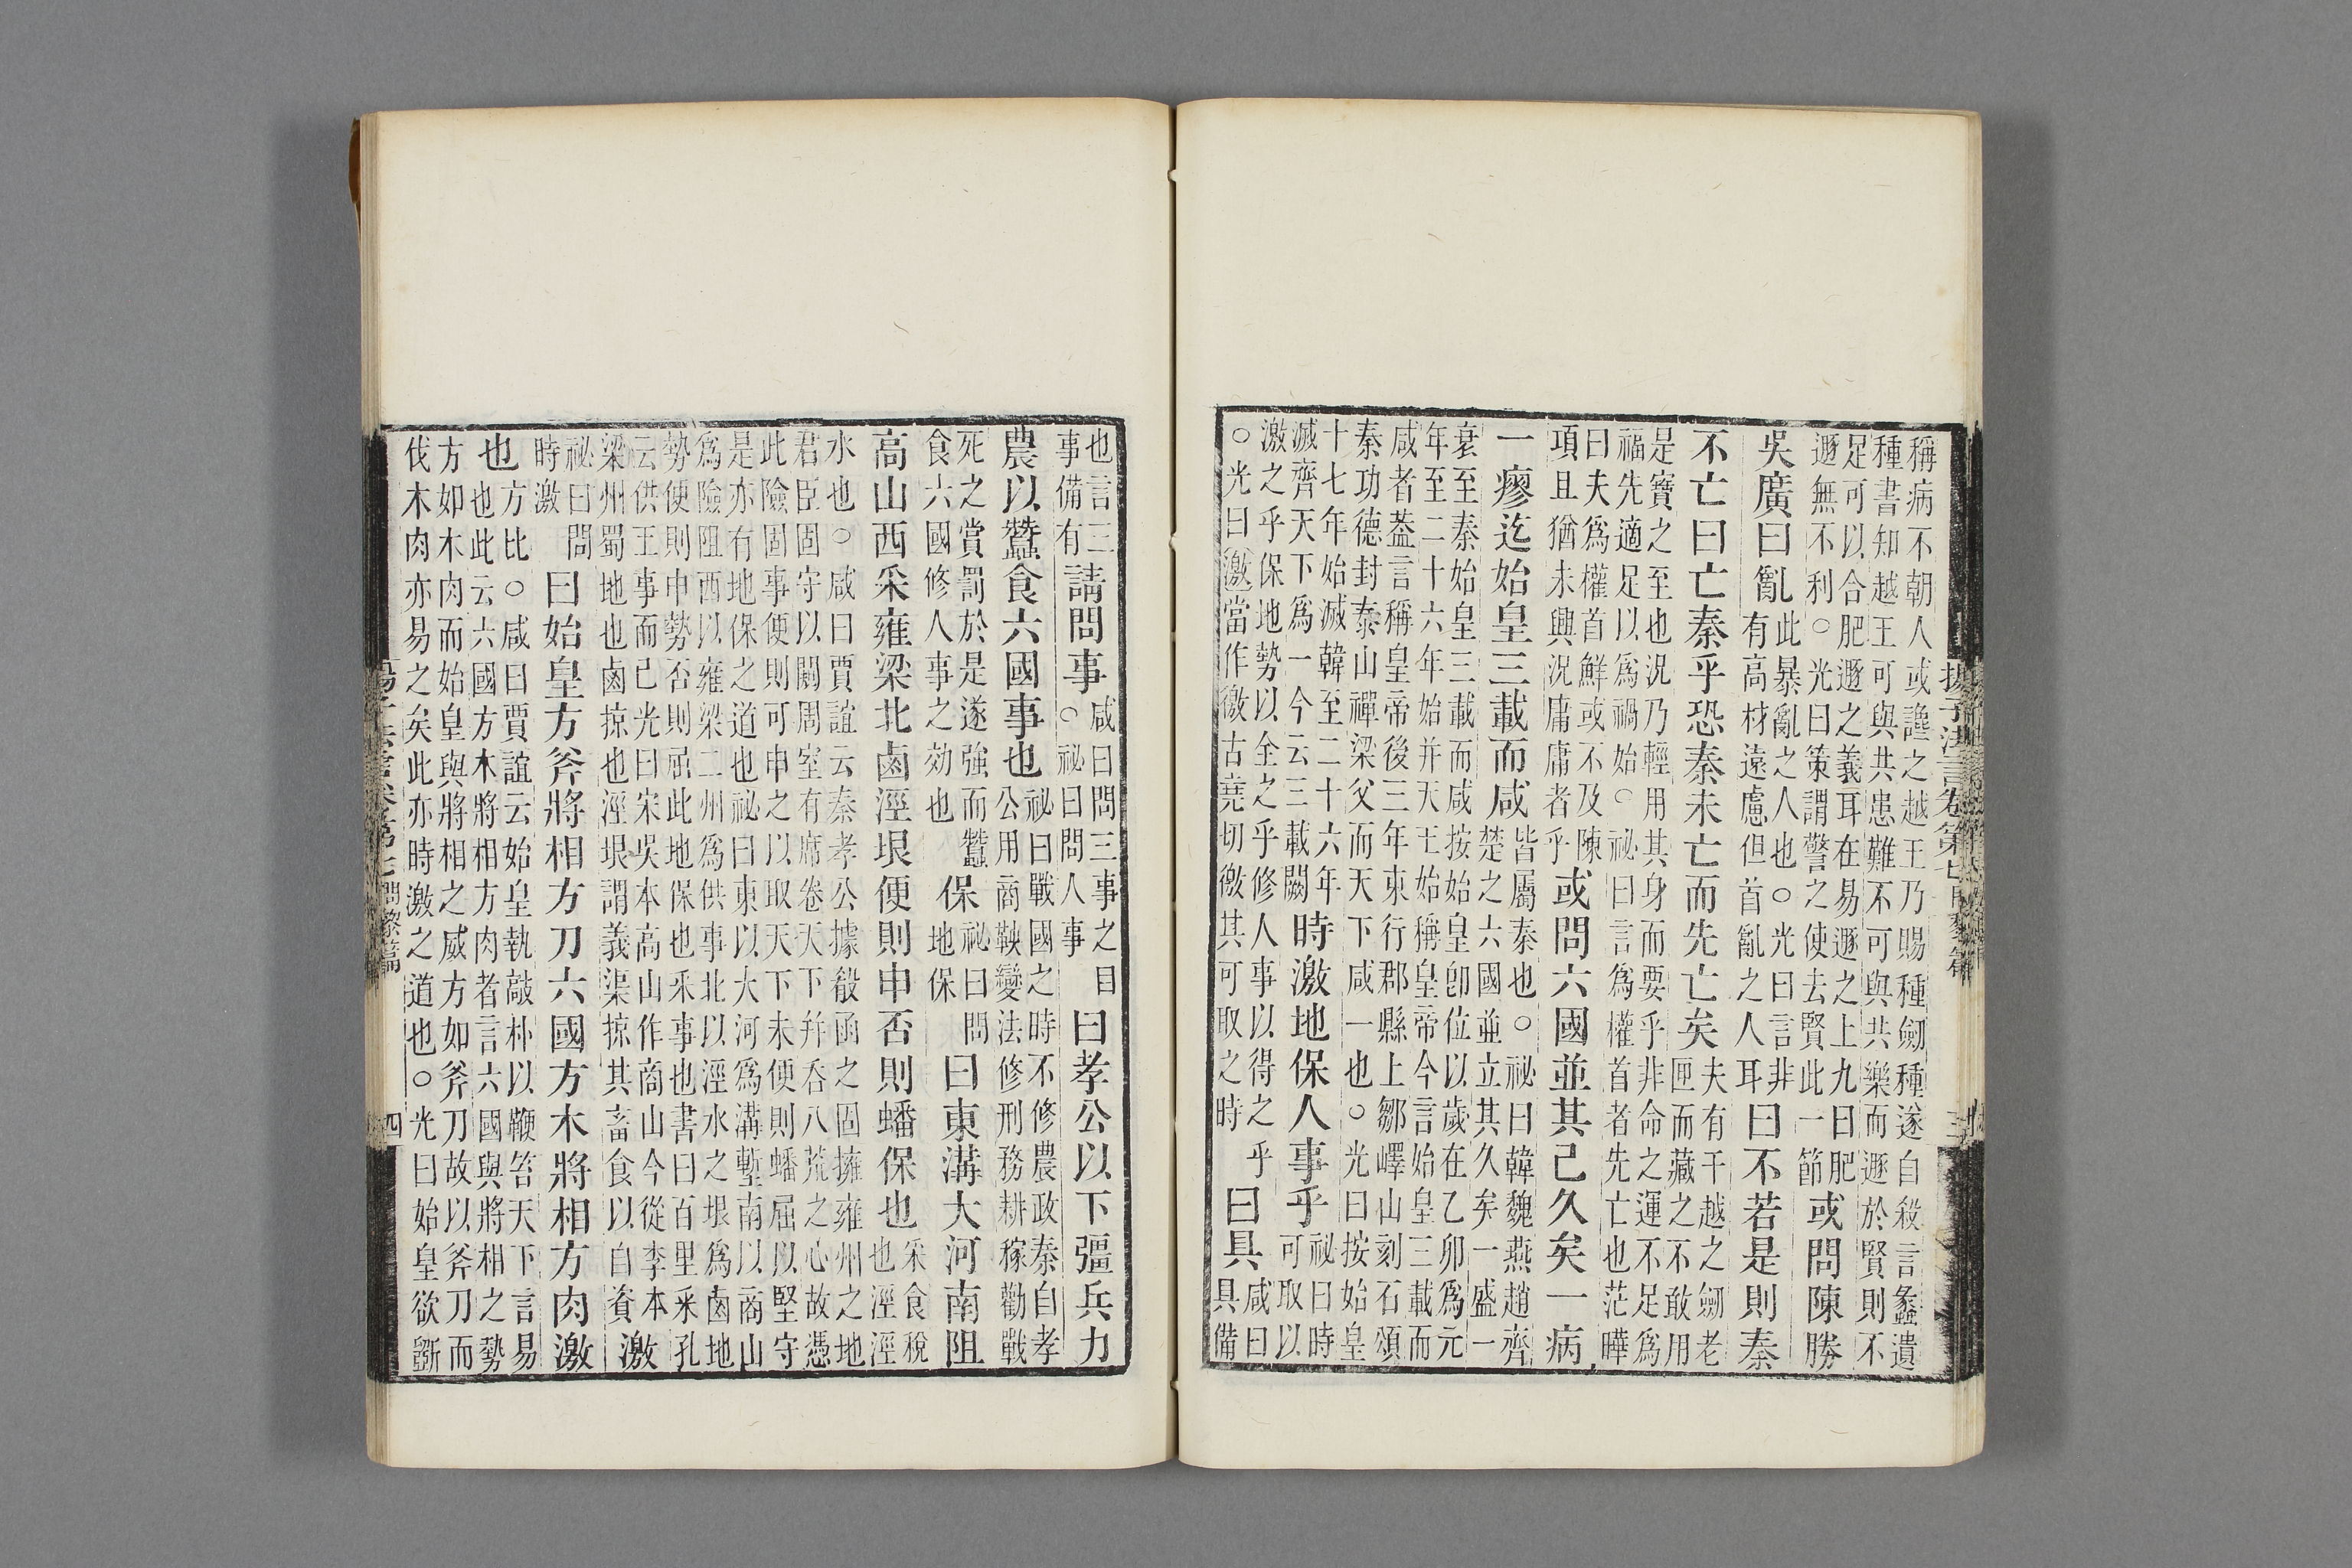 稱病不朝人或讒之越王乃賜種劒種遂自殺言蠡遺
種書知越王可與共患難不可與共樂而遯於賢則不
足可以合肥遯之義耳在易遯之上九曰肥
遯無不利○光曰策謂警之使去賢此一節
或問陳勝
吳廣曰亂
此暴亂之人也○光曰言非
有高材遠慮但首亂之人耳
曰不若是則秦
不亡曰亡秦乎恐秦未亡而先亡矣
夫有干越之劒老
匣而藏之不敢用
是寶之至也況乃輕用其身而要乎非命之運不足爲
福先適足以爲禍始○祕曰言爲權首者先亡也茫曄
曰夫爲權首鮮或不及陳
項且猶未興況庸庸者乎
或問六國並其已久矣一病
一瘳迄始皇三載而咸
皆屬秦也○祕曰韓魏燕趙齊
楚之六國並立其久矣一盛一
衰至秦始皇三載而咸按始皇卽位以歲在乙卯爲元
年至二十六年始并天王始稱皇帝今言始皇三載而
咸者葢言稱皇帝後三年東行郡縣上鄒嶧山刻石頌
秦功德封泰山禪梁父而天下咸一也○光曰按始皇
十七年始滅韓至二十六年
滅齊天下爲一今云三載闕
時激地保人事乎
祕曰時
可取以
激之乎保地勢以全之乎修人事以得之乎
○光曰激當作徼古堯切徼其可取之時
曰具
咸曰
具備
揚子法言卷第七 問黎篇
三
也言三
事備有
請問事
咸曰問三事之目
○祕曰問人事
曰孝公以下彊兵力
農以蠶食六國事也
祕曰戰國之時不修農政秦自孝
公用商鞅變法修刑務耕稼勸戰
死之賞罰於是遂強而蠶
食六國修人事之効也
保
祕曰問
地保
曰東溝大河南阻
高山西采雍梁北鹵涇垠便則申否則蟠保也
采食稅
也涇涇
水也○咸曰賈誼云秦孝公據殽函之固擁雍州之地
君臣固守以闚周室有席卷天下并吞八荒之心故憑
此險固事便則可申之以取天下未便則蟠屈以堅守
是亦有地保之道也祕曰東以大河爲溝塹南以商山
爲險阻西以雍梁二州爲供事北以涇水之垠爲鹵地
勢便則申勢否則屈此地保也采事也書曰百里采孔
云供王事而已光曰宋吳本高山作商山今從李本
梁州蜀地也鹵掠也涇垠謂義渠掠其畜食以自資
激
祕曰問
時激
曰始皇方斧將相方刀六國方木將相方肉激
也
方比○咸曰賈誼云始皇執敲朴以鞭笞天下言易
也此云六國方木將相方肉者言六國與將相之勢
方如木肉而始皇與將相之威方如斧刀故以斧刀而
伐木肉亦易之矣此亦時激之道也○光曰始皇欲斵
揚子法言卷第七 問黎篇
四